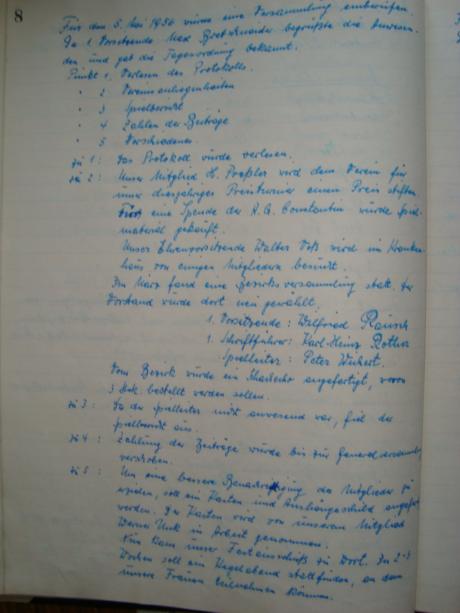 8
Für den 5. Mai 1956 wurde eine Versammlung einberufen.
Der 1. Vorsitzende Max Bretschneider begrüßte die Anwesen-
den und gab die Tagesordnung bekannt.
Punkt 1. Verlesen des Protokolls.
" 2 Vereinsangelegenheiten
" 3 Spielbericht
" 4 Zahlen der Beiträge
" 5 Verschiedenes
zu 1: Das Protokoll wurde verlesen.
zu 2: Unser Mitglied H. Preßler wird dem Verein für
unser diesjähriges Preisturnier einen Preis stiften.
Für eine Spende der K.G. Constantin wurde Spiel-
material gekauft.
Unser Ehrenvorsitzende Walter Voß wird im Kranken-
haus von einigen Mitgliedern besucht.
Im März fand eine Bezirksversammlung statt. Der
Vorstand wurde dort neu gewählt.
1. Vorsitzende: Walfried Rausch
1. Schriftführer: Karl-Heinz
Spielleiter: Peter Wichert.
Vom Bezirk wurde ein Schachecho angefertigt, wovon
3 Stck. bestellt werden sollen.
zu 3: Da der Spielleiter nicht anwesend war, fiel der
Spielbericht aus.
zu 4: Zahlung der Beiträge wurde bis zur Generalversammlung
verschoben.
zu 5: Um eine bessere Benachrichtigung der Mitglieder zu
erzielen, soll ein Kasten und Aushängeschild angefertigt
werden. Der Kasten wird von unserem Mitglied
Werner in Arbeit genommen.
Nun kam unser Festausschuß zu Wort. In 2-3
Wochen soll ein Kegelabend stattfinden, an dem
unsere Frauen teilnehmen können.